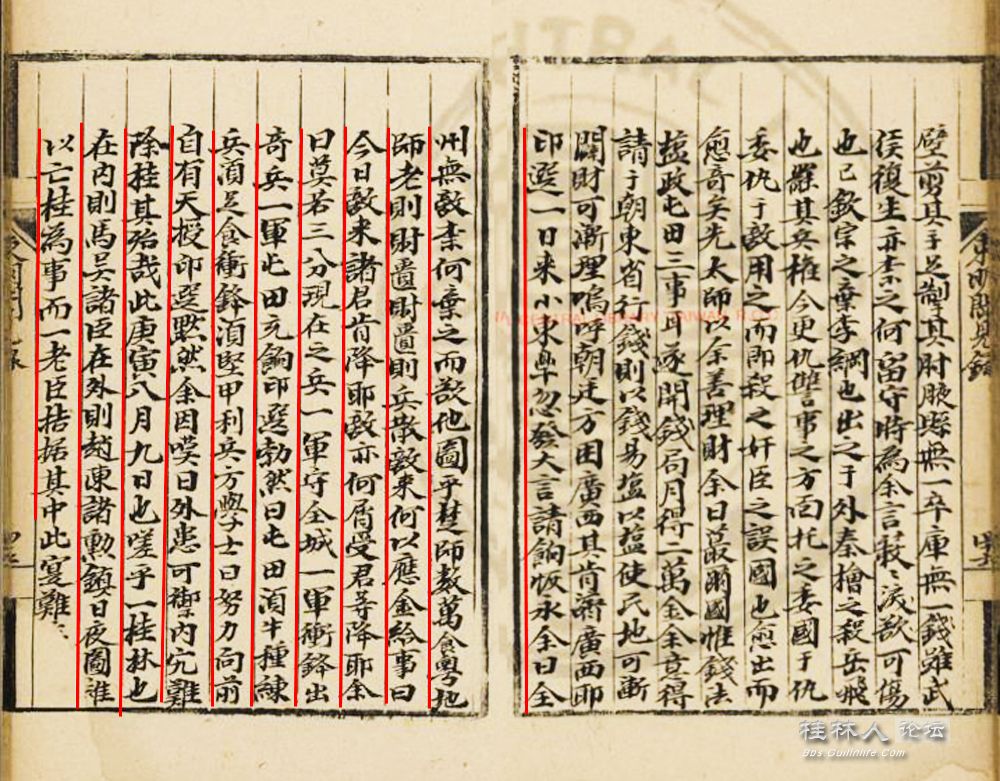 剪其手足制其肘腋縣無一卒庫無一錢雖武
侯復生亦末之何留守時為余言蔌〻淚欲可傷
也已欽宗之棄李綱也出之于外秦檜之殺岳飛
也罷其兵權今更仇讐事之方面托之委國于仇
委仇于敵用之而即殺之奸臣之誤國也愈出而
愈奇矣先太師以余善理財余曰蕞爾國惟錢法
塩政屯田三事耳遂開錢局月得二萬金余意得
請于朝東省行錢則以錢易塩以塩使民地可漸
闢財可漸理嗚呼朝廷方困廣西其肯濟廣西耶
印選一日来小東皐忽發大言請餉恢永余曰全
東明聞見錄
州無敵棄何棄之而欲他圖乎楚師数萬食粵地
師老則財匱財匱則兵散敵来何以應金給事曰
今日敵来諸君肯降耶敵亦何屑受君等降耶余
曰莫若三分現在之兵一軍守全城一軍衝鋒出
奇兵一軍屯田充餉印選勃然曰屯田湏牛種練
兵湏足食衝鋒湏堅甲利兵方學士曰努力向前
自有天授印選默然余因嘆曰外患可禦内宄難
除桂其殆哉此庚寅八月九日也嗟乎一桂林也
在内則馬吴諸臣在外則趙諸勳鎮日夜圖維
以亡桂為事而一老臣拮据其中此寔難〻
桂林人 论坛
Bbs.Guilinlife.Com